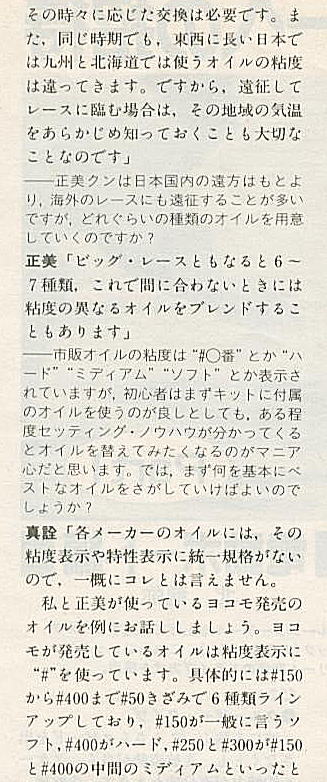 その時々に応じた交換は必要です。ま
た，同じ時期でも，東西に長い日本で
は九州と北海道では使うオイルの粘度
は違ってきます。ですから，遠征して
レースに臨む場合は，その地域の気温
をあらかじめ知っておくことも大切な
ことなのです」
――正美クンは日本国内の遠方はもとよ
り，海外のレースにも遠征することが多い
ですが，どれぐらいの種類のオイルを用意
していくのですか？
正美「ビッグ・レースともなると6～
7種類，これで間に合わないときには
粘度の異なるオイルをブレンドするこ
ともあります」
――市販オイルの粘度は“#○番”とか“ハ
ード”“ミディアム”“ソフト”とか表示さ
れていますが，初心者はまずキットに付属
のオイルを使うのが良しとしても，ある程
度セッティング・ノウハウが分かってくる
とオイルを替えてみたくなるのがマニア
心だと思います。では，まず何を基本にベ
ストなオイルをさがしていけばよいので
しょうか？
真詮「各メーカーのオイルには，その
粘度表示や特性表示に統一規格がない
ので，一概にコレとは言えません。
　私と正美が使っているヨコモ発売の
オイルを例にお話ししましょう。ヨコ
モが発売しているオイルは粘度表示に
“#”を使っています。具体的には#150
から#400まで#50きざみで6種類ライン
アップしており，#150が一般に言うソ
フト，#400がハード，#250と#300が#150
と#400の中間のミディアムといったと